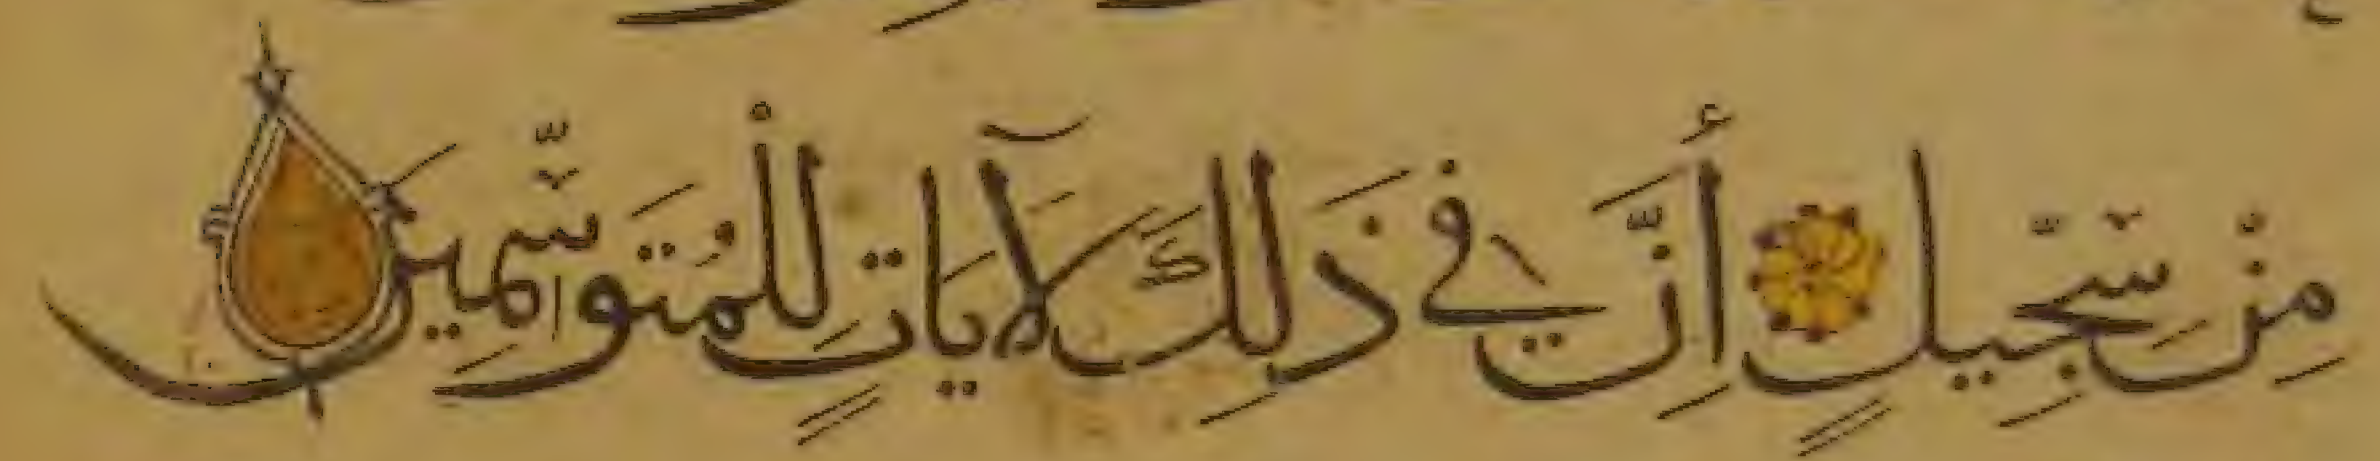 مِنْ سِجِّيلٍ أِنَّ فِي ذَلِكَ لَآيَاتٍ لِلْمُتَوَسِّمِينَ